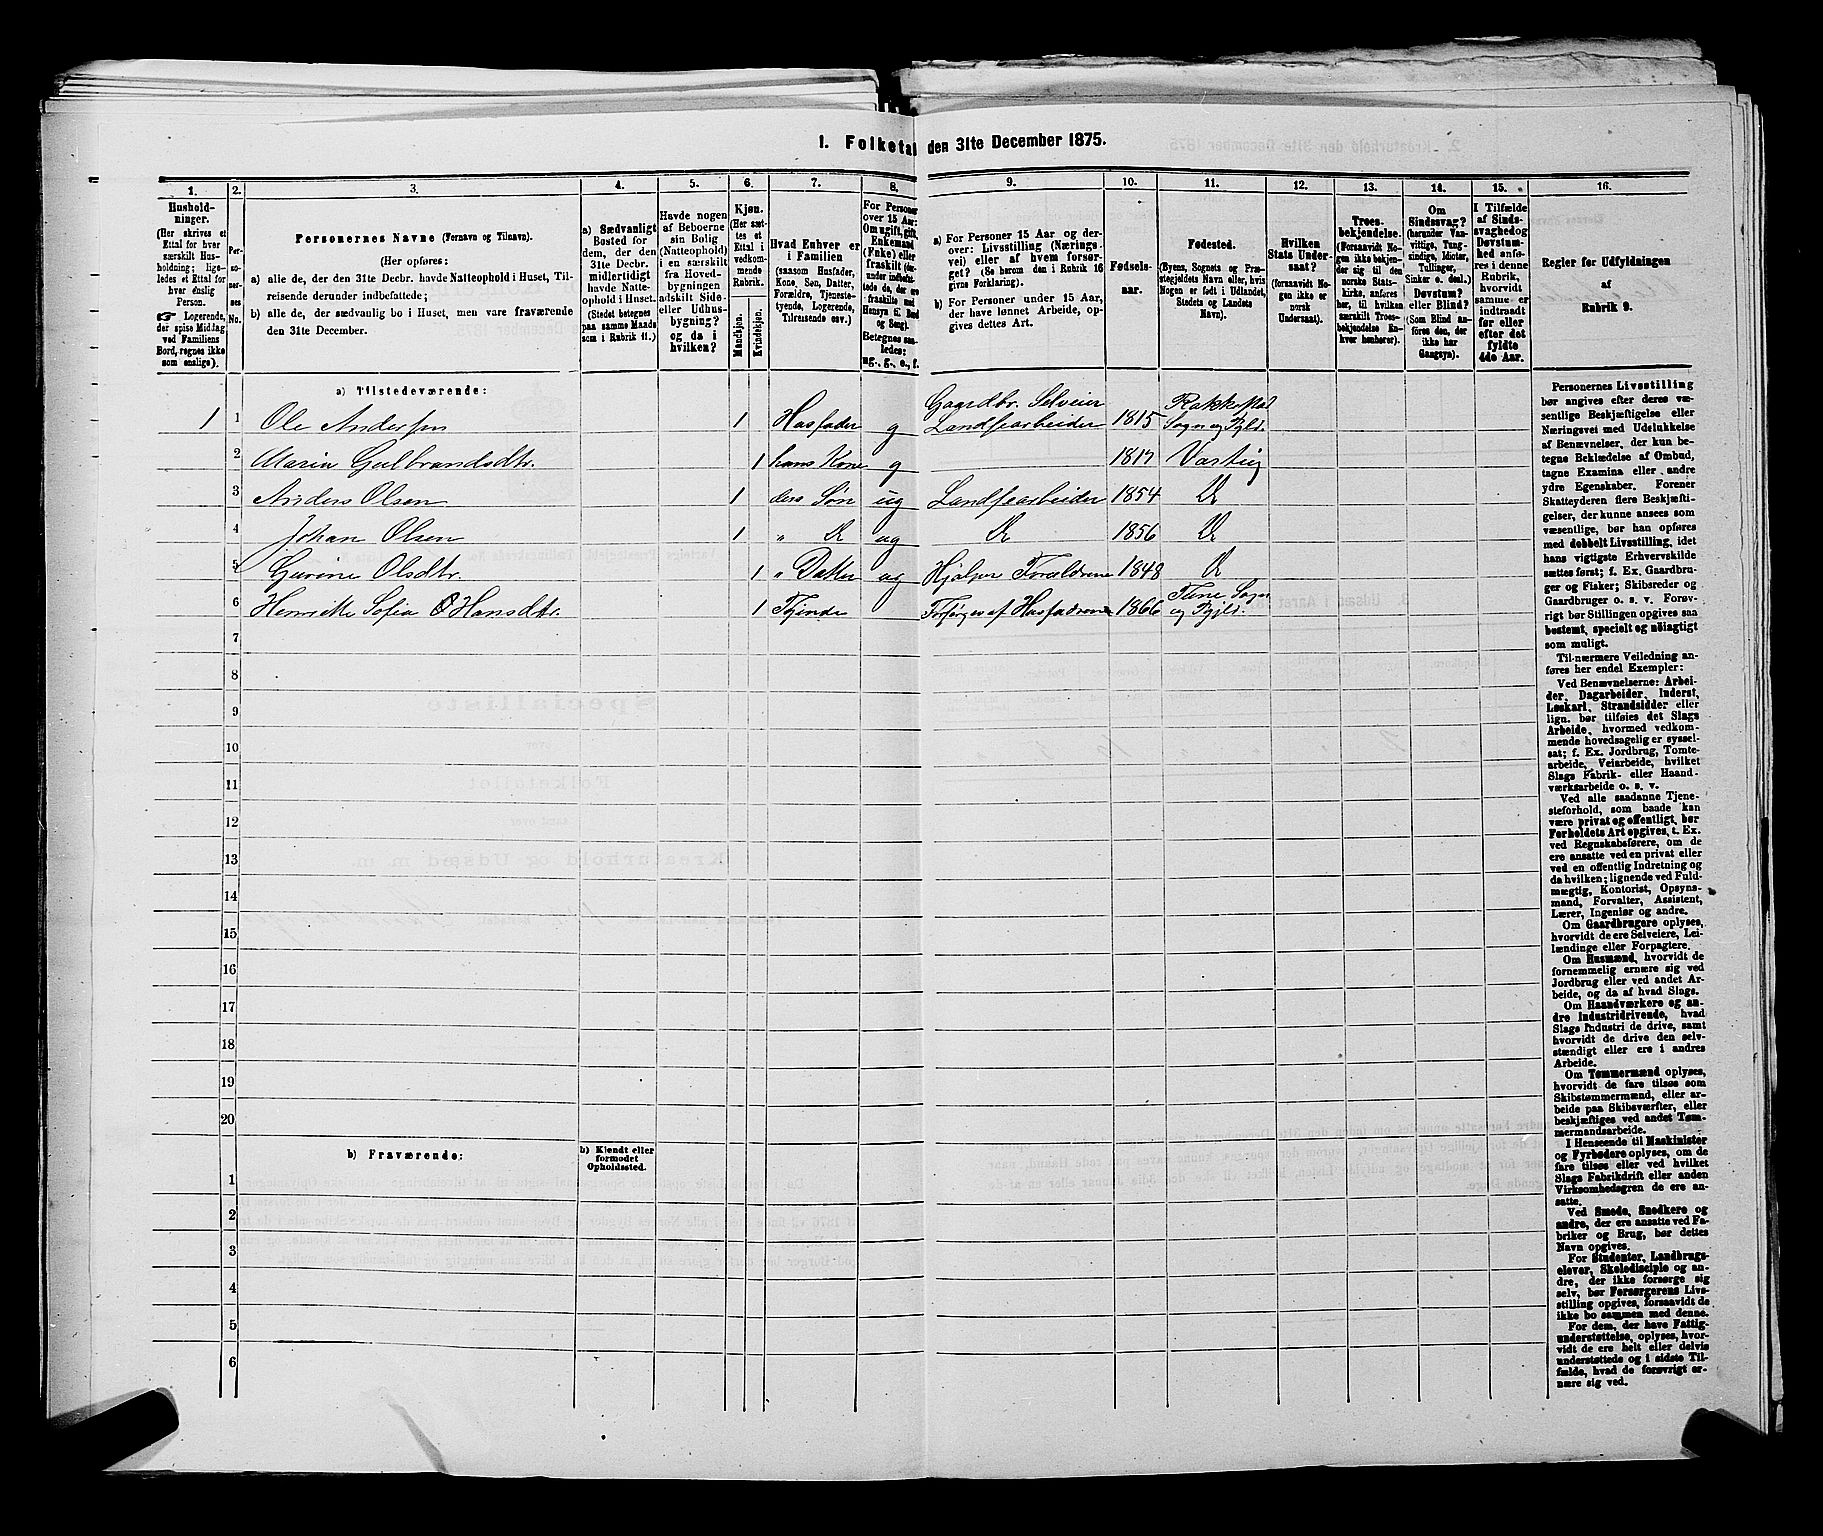 1. Folketal den 31te December 1875.
1. 2. 3. 4. 5. 6. 7. 8. 9. 10. 11. 12. 13. 14. 15. 16.
Hushold-
ninger.
(Her skrives et
Ettal for hver
særskilt Hus-
holdning; lige-
ledes et Ettal for
hver enslig
Person.
☞ Logerende,
der spise Middag
ved Familiens
Bord, regnes ikke
som enslige).
Per-
so-
ner-
nes
No.
Personernes Navne (Fornavn og Tilnavn).
(Her opføres:
a) alle de, der den 31te Decbr. havde Natteophold i Huset, Til-
reisende derunder indbefattede;
b) alle de, der sædvanlig bo i Huset, men vare fraværende
den 31te December.
a) Sædvanligt
Bosted for
dem, der den
31te Decbr.
midlertidigt
havde Natte-
ophold i Huset.
(Stedet betegnes
paa samme Maade
som i Rubrik 11.)
Havde nogen
af Beboerne
sin Bolig
(Natteophold)
i en særskilt
fra Hoved-
bygningen
adskilt Side-
eller Udhus-
bygning?
og da i
hvilken?
Kjøn.
(Her sæt-
tes et
Ettal i
vedkom-
mende
Rubrik.
Mandkjøn.
Kvindekjøn.
Hvad Enhver er
i Familien
(saasom Husfader,
Kone, Søn, Datter,
Forældre, Tjeneste-
tyende, Logerende,
Tilreisende osv.)
For Personer
over 15 Aar:
Om ugift, gift,
Enkemand
(Enke) eller
fraskilt
Betegnes saa-
ledes:
ug., g., e., f.
a) For Personer 15 Aar og der-
over: Livsstilling (Nærings-
vei) eller af hvem forsør-
get? (Se herom den i Rubrik 16
givne Forklaring).
b) For Personer under 15 Aar,
der have lønnet Arbeide, op-
gives dettes Art.
Fødsels-
aar.
Fødested.
(Byens, Sognets og Præ-
stegjeldets Navn eller, hvis
Nogen er født i Udlandet,
Stedets og Landets
Navn).
Hvilken
Stats Under-
saat?
(forsaavidt No-
gen ikke er
norsk
Undersaat).
Troes-
bekjendelse.
(Forsaavidt No-
gen ikke bekjen-
der sig til den
norske Stats-
kirke, anføres
her, til hvilken
særskilt Troes-
bekjendelse En-
hver henhører).
Om
Sindssvag?
(herunder Van-
vittige, Tung-
sindige, Idioter,
Tullinger,
Sinker o. desl.)
Døvstum?
eller Blind?
(Som Blind an-
føres den, der
ikke har
Gangsyn).
I Tilfælde
af Sinds-
svaghed og
Døvstum-
hed anfø-
res i denne
Rubrik,
hvorvidt
samme er
indtraadt
før eller
efter det
fyldte
4de Aar.
Regler for Udfyldningen
af
Rubrik 9.
a) Tilstedeværende:
1 1 Ole Andersen 1 Husfader g Gaardbr. Selveier Landsarbeider 1815 Rakkestad Sogn og Pgjld.
2 Maria Gulbrandsdtr. 1 hans Kone g 1817 Varteig
3 Anders Olsen 1 ders Søn ug Landsarbeider 1854 Do
4 Johan Olsen 1 " Do ug Do 1856 Do
5 Gurine Olsdtr. 1 " Datter ug Hjælper Forældrene 1848 Do
6 Henriette Sofia Hansdtr. 1 Tjende Forsørges af Husfaderen 1866 Tune Sogn og Pgjld.
7
8
9
10
11
12
13
14
15
16
17
18
19
20
b) Fraværende:
b) Kjendt eller
formodet
Opholdssted.
1
2
3
4
5
6
Personernes Livsstilling
bør angives efter deres væ-
sentlige Beskjæftigelse eller
Næringsvei med Udelukkelse
af Benævnelser, der kun be-
tegne Beklædelse af Ombud,
tagne Examina eller andre
ydre Egenskaber. Forener
Skatteyderen flere Beskjæfti-
gelser, der kunne ansees som
væsentlige, bør han opføres
med dobbelt Livsstilling, idet
hans vigtigste Erhvervskilde
sættes først; f. Ex. Gaardbru-
ger og Fisker; Skibsreder og
Gaardbruger o. s. v. Forøv-
rigt bør Stillingen opgives saa
bestemt, specielt og nøiagtigt
som muligt.
Til nærmere Veiledning an-
føres her endel Exempler:
Ved Benævnelserne: Arbei-
der, Dagarbeider, Inderst,
Løskarl, Strandsidder eller
lign. bør tilføies det Slags
Arbeide, hvormed vedkom-
mende hovedsagelig er syssel-
sat; f. Ex. Jordbrug, Tomte-
arbeide, Veiarbeide, hvilket
Slags Fabrik- eller Haand-
værksarbeide o. s. v.
Ved alle saadanne Tjene-
steforhold, som baade kan
være privat og offentligt, bør
Forholdets Art opgives, t. Ex.
ved Regnskabsførere, om de
ere ansatte ved en privat eller
ved en offentlig Indretning og
da hvilken; lignende ved Fuld-
mægtig, Kontorist, Opsyns-
mand, Forvalter, Assistent,
Lærer, Ingeniør og andre.
Om Gaardbrugere oplyses,
hvorvidt de ere Selveiere, Lei-
lændinge eller Forpagtere.
Om Husmænd, hvorvidt de
fornemmelig ernære sig ved
Jordbrug eller ved andet Ar-
beide, og da af hvad Slags.
Om Haandværkere og an-
dre Industridrivende, hvad
Slags Industri de drive, samt
hvorvidt de drive den selv-
stændigt eller ere i andres
Arbeide.
Om Tømmermænd oplyses,
hvorvidt de fare tilsøs som
Skibstømmermænd, eller ar-
beide paa Skibsværfter, eller
beskjæftiges ved andet Tøm-
mermandsarbeide.
I Henseende til Maskinister
og Fyrbødere oplyses, om de
fare tilsøs eller ved hvilket
Slags Fabrikdrift eller anden
Virksomhedsgren de ere an-
satte.
Ved Smede, Snedkere og
andre, der ere ansatte ved Fa-
briker og Brug, bør dettes
Navn opgives.
For Studenter, Landbrugs-
elever, Skoledisciple og an-
dre, der ikke forsørge sig
selv, bør Forsørgerens Livs-
stilling opgives, forsaavidt de
ikke bo sammen med denne.
For dem, der have Fattig-
understøttelse, oplyses, hvor-
vidt de ere helt eller delvis
understøttede og i sidste Til-
fælde, hvad de forøvrigt er-
nære sig ved.